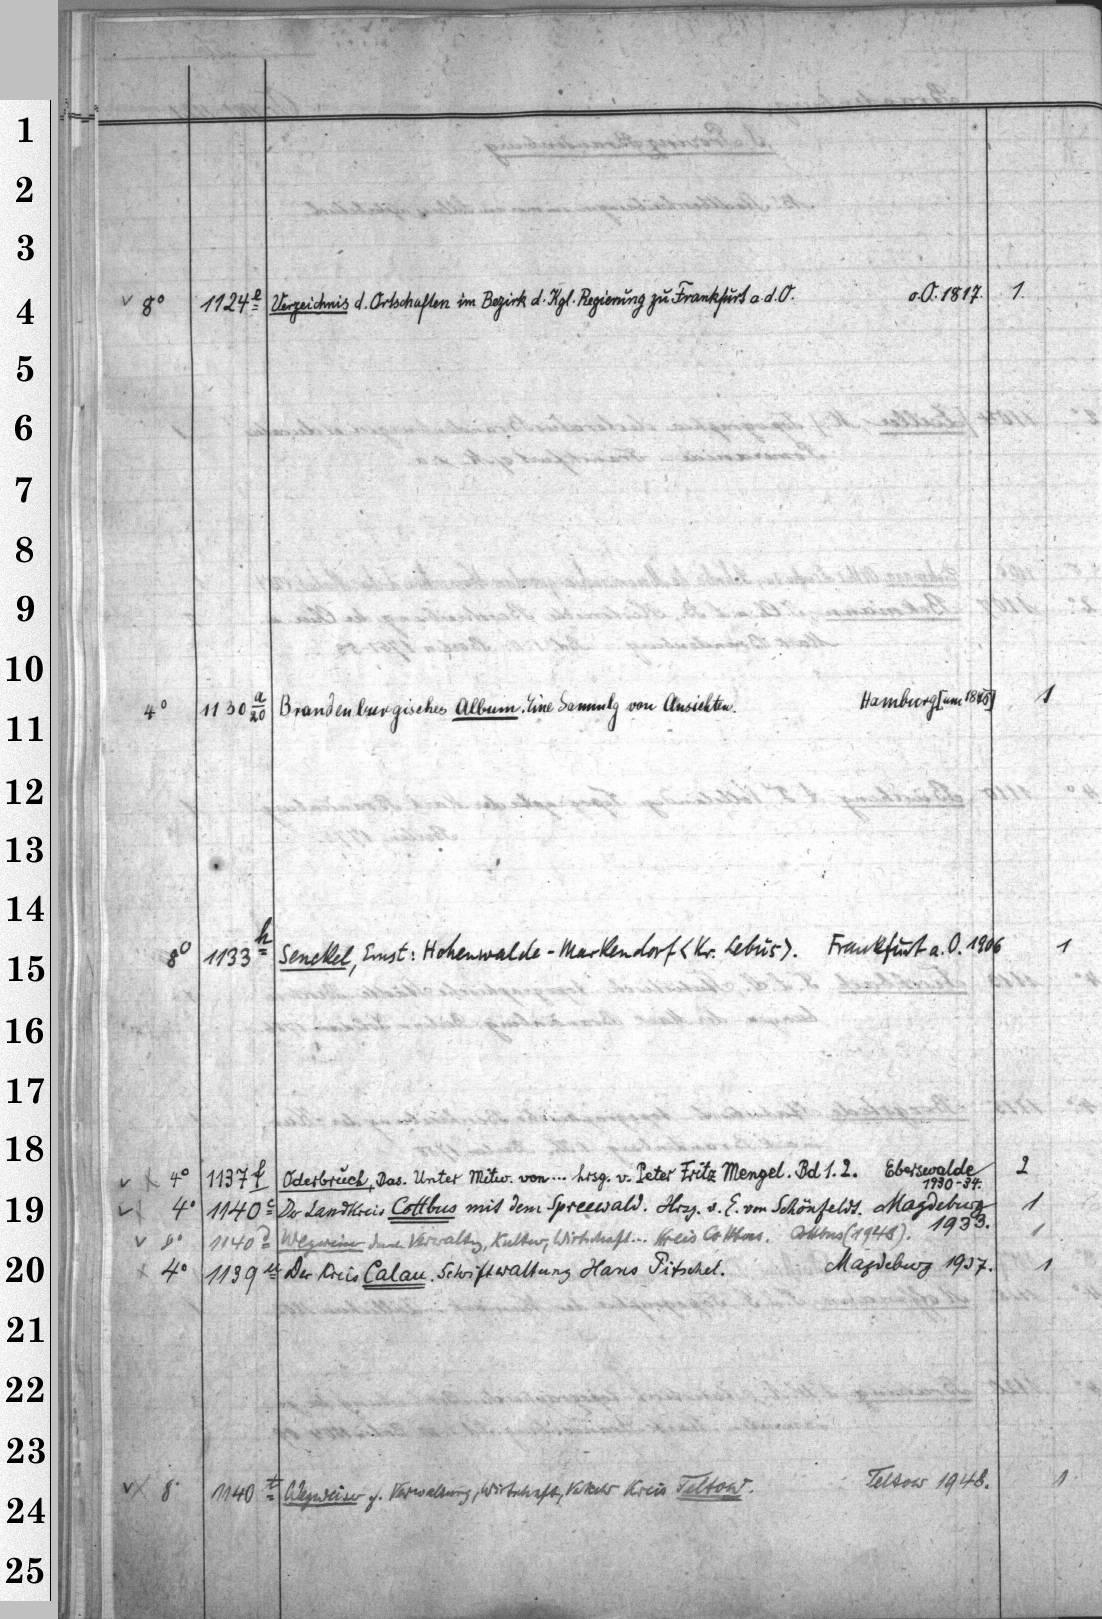 1
2
3
4
5
6
7
8
9
10
11
12
13
14
15
16
17
18
19
20
21
22
23
24
25
v 8° 1124 e Verzeichnis d. Ortschaften im Bezirk d. Kgl. Regierung zu Frankfurt a. d. O. o. O. 1817. 1.
4° 1130 a/20 Brandenburgisches Album. Eine Sammlg von Ansichten. Hamburg [um 1845] 1
8° 1133 h Senckel, Ernst: Hohenwalde-Markendorf <Kr. Lebus>. Frankfurt a. O. 1906 1
v x 4° 1137 f Oderbruch, Das. Unter Mitw. von ... hrsg. v. Peter Fritz Mengel. Bd 1. 2. Eberswalde 2
1930-34.
4° 1140 c Der Landkreis Cottbus mit dem Spreewald. Hrzg. v. E. von Schönfeldt. Magdeburg 1
1933.
v 8° 1140 d Wegweiser durch Verwaltg, Kultur, Wirtschaft... Kreis Cottbus. Cottbus (1948). 1
x 4° 1139 Der Kreis Calau. Schriftwaltung Hans Pitschel. Magdeburg 1937. 1
v x 8° 1140 t Wegweiser f. Verwaltung, Wirtschaft, Verkehr Kreis Teltow. Teltow 1948. 1